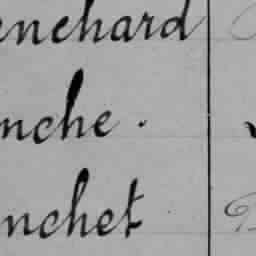 enchard
nche.
nchet